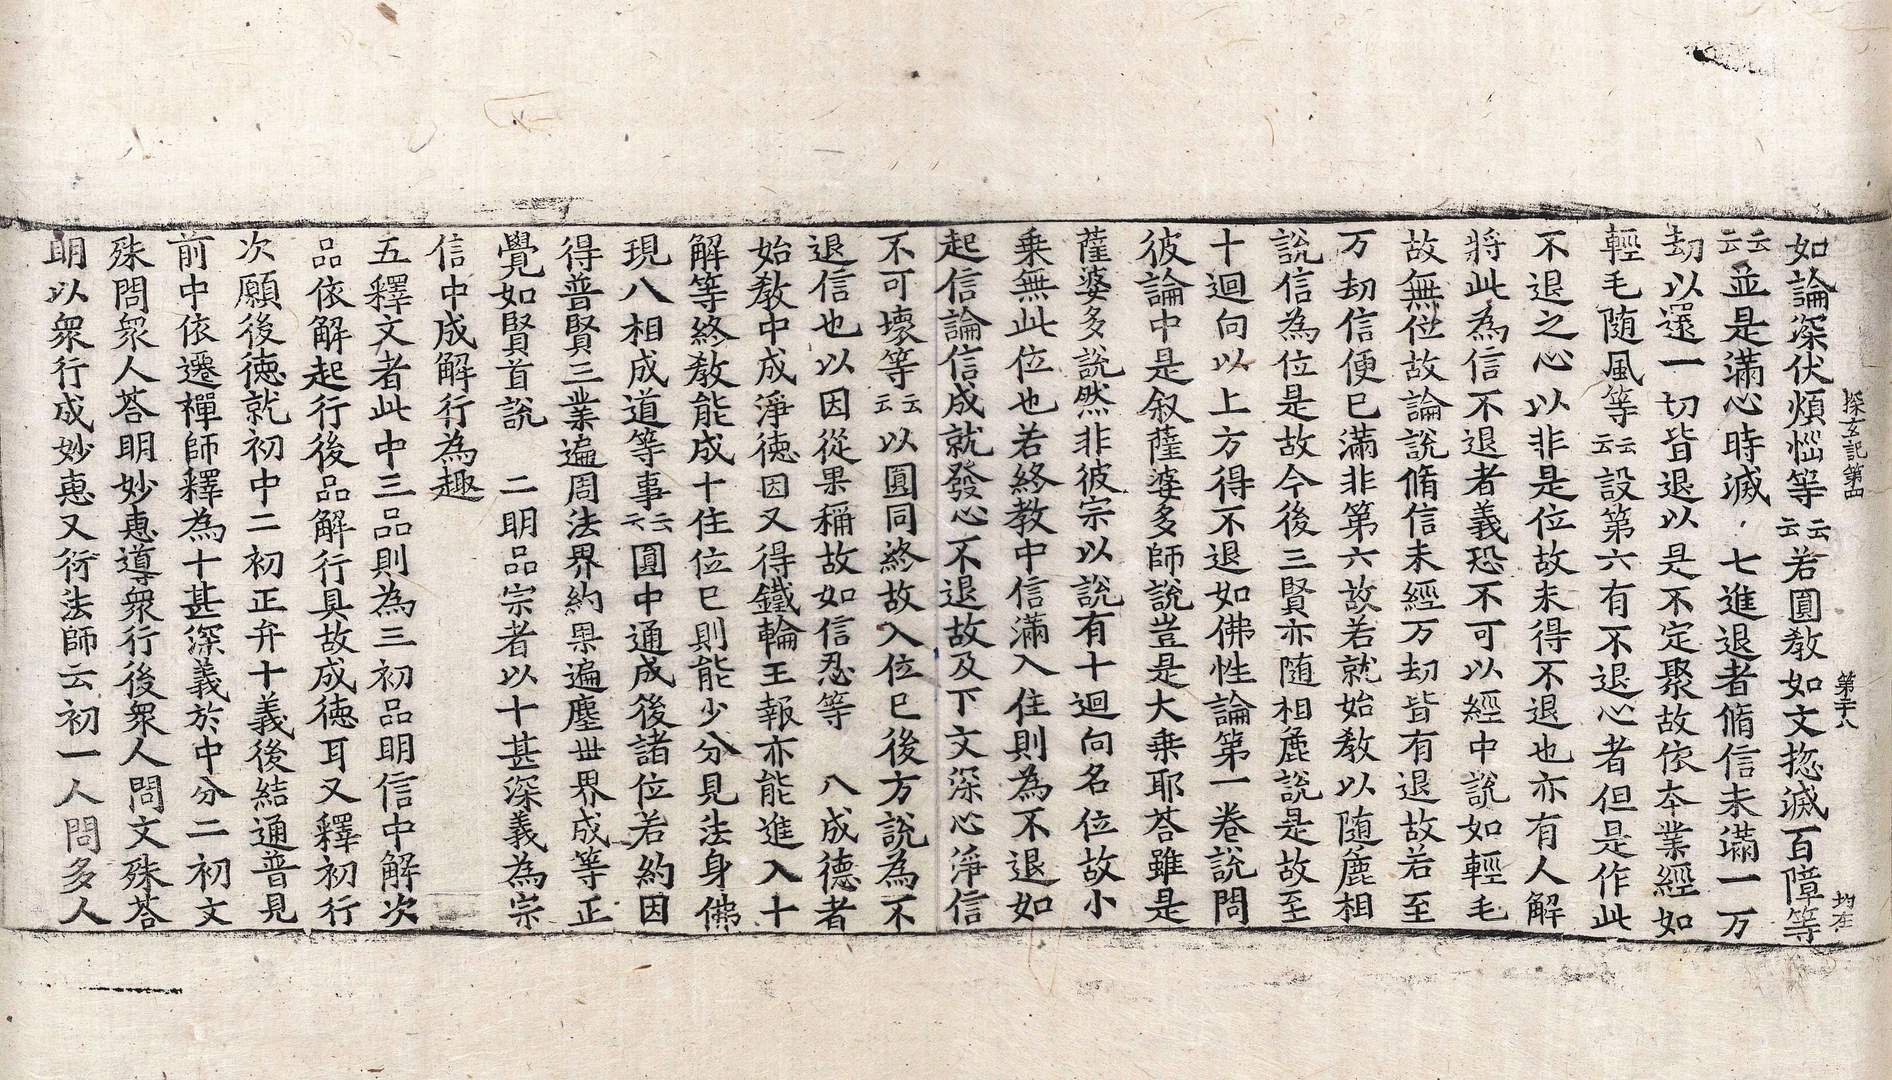 探玄記第四　第三十八　均在
如論深伏煩惱等云云若圓教如文揔滅百障等
云云並是滿心時滅　七進退者脩信未滿一万
劫以還一切皆退以是不定聚故依本業經如
輕毛随風等云云設第六有不退心者但是作此
不退之心以非是位故未得不退也亦有人解
將此為信不退者義恐不可以經中說如輕毛
故無位故論說脩信未經万劫皆有退故若至
万劫信便已滿非第六故若就始教以随麁相
說信為位是故今後三賢亦随相麁說是故至
十迴向以上方得不退如佛性論第一卷說問
彼論中是叙薩婆多師說豈是大乗耶荅雖是
薩婆多說然非彼宗以說有十迴向名位故小
乗無此位也若終教中信滿入住則為不退如
起信論信成就發心不退故及下文深心淨信
不可壞等云云以圓同終故入位已後方說為不
退信也以因從果稱故如信忍等　八成德者
始教中成淨德因又得鐵輪王報亦能進入十
解等終教能成十住位已則能少分見法身佛
現八相成道等事云云圓中通成後諸位若約因
得普賢三業遍周法界約果遍塵世界成等正
覺如賢首說　二明品宗者以十甚深義為宗
信中成解行為趣
五釋文者此中三品則為三初品明信中解次
品依解起行後品解行具故成德耳又釋初行
次願後德就初中二初正弁十義後結通普見
前中依遷禪師釋為十甚深義於中分二初文
殊問衆人荅明妙恵導衆行後衆人問文殊荅
明以衆行成妙恵又衍法師云初一人問多人